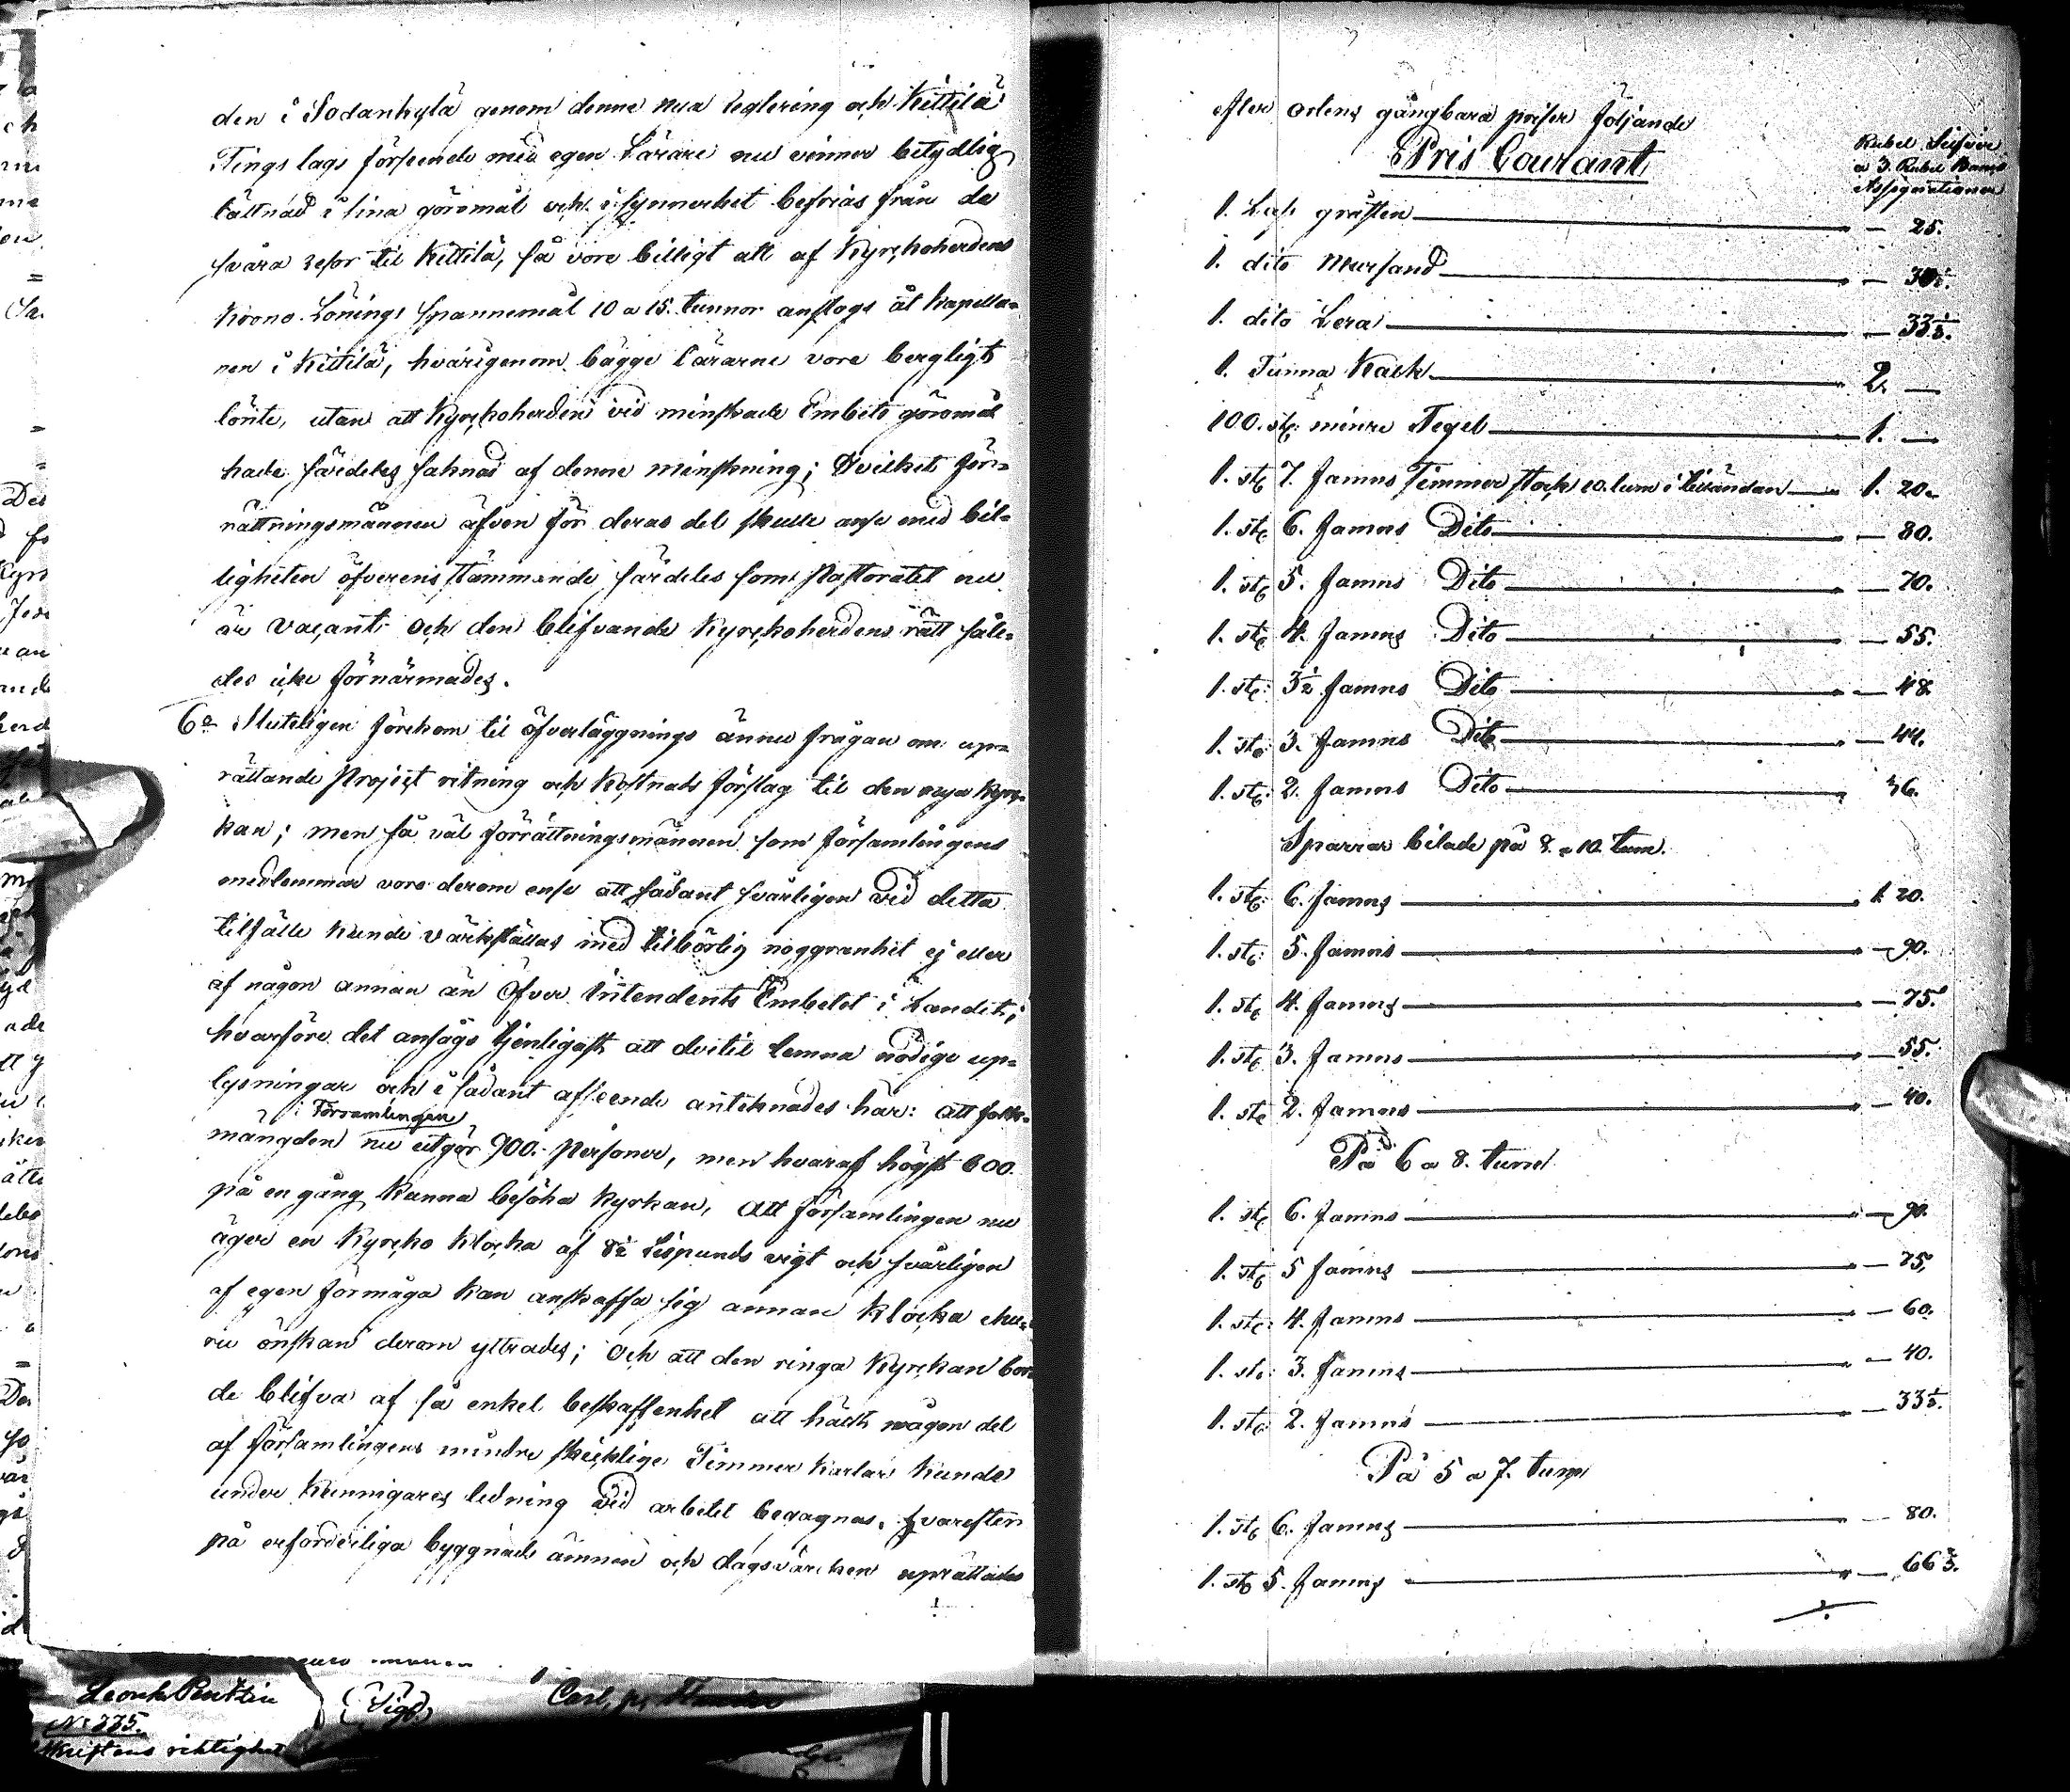 den i Sodankylä genom denne nua reglering och Kittilä
Tings lags förseende med egen Lärare nu vinner betydlig
lättnad i sina göromål och i synnerhet befrias från de
svåra resor til Kittilä, så vore billigt att af Kyrckoherdens
Krono Lönings spannemål 10 a 15. tunnor anslogs åt Kapella=
nen i Kittilä, hvarigenom bägge Lärarne vore bergligt
lönte, utan att Kyrckoherden vid minskade Embets göromål
hade särdeles saknad af denne minskning; Hvilket för=
rättningsmännen äfven för deras del skulle anse med bil=
ligheten öfverensstämmande särdeles som Pastoratet nu
är vacant och den blifvande Kyrckoherdens rätt såle=
des icke förnärmades.
6o Sluteligen förekom til öfverläggnings ännu frågan om up=
rättande Project ritning och Kostnads förslag til den nya Kyrc=
kan; men så väl förrättningsmännen som församlingens
medlemmar voro derom ense att sådant svårligen vid detta
tilfälle kunde värkställas med tilbörlig noggranhet ej eller
af någon annan än Öfver Intendents Embetet i Landet;
hvarföre det ansågs tjenligast att dertil lemna nödige up=
lysningar och i sådant afseende antecknades här: att folk=
i Församlingen
mängden nu utgör 900. personer, men hvaraf högst 600.
på en gång kunna besöka Kyrkan, att församlingen nu
äger en Kyrcko Klocka af 8½ Lispunds vigt och svårligen
af egen förmåga kan anskaffa sig annan Klocka ehu=
ru önskan derom yttrades; och att den ringa Kyrckan bor=
de blifva af så enkel beskaffenhet att hälst någon del
af församlingens mindre skicklige Timmer karlar kunde
under kunnigares ledning vid arbetet begagnas. Hvarefter
på erforderliga byggnads ämnen och dagsvärcken uprättades
efter ortens gångbara priser följande
Pris Courant
Rubel Silfver
a 3. Rubel Banco
Assignationer
1. Lass gråsten — 25.
1. dito Mursand —
1. dito Lera — 33⅓.
1. Tunna Kalk 2. —
100. st: minre Tegel 1. —
1. st: 7. famns Timmer stock 10. tum i lilländan 1. 20.
1. st: 6. famns Dito — 80.
1. st: 5. famns Dito — 70.
1. st: 4. famns Dito — 55.
1. st: 3½ famns Dito — 48
1. st: 3. famns Dito — 44.
1. st: 2. famns Dito 36.
Sparrar bilade på 8. a 10. tum.
1. st: 6. famns 1. 20.
1. st: 5. famns — 90.
1. st: 4. famns — 75.
1. st: 3. famns — 55.
1. st: 2. famns — 40.
På 6 a 8. tum
1. st: 6. famns — 90.
1. st: 5 famns — 75.
1. st: 4. famns — 60.
1. st: 3. famns — 40.
1. st: 2. famns — 33⅓.
På 5 a 7. tum
1. st: 6. famns — 80.
1. st: 5. famns — 66⅔.
No 335.
riktighet